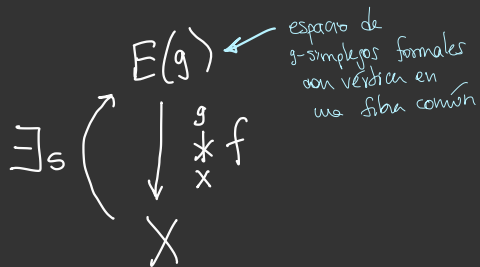 espacio de
g-simplejos formales
con vértices en
una fibra común
E(g)
g
∃s
* f
X
X